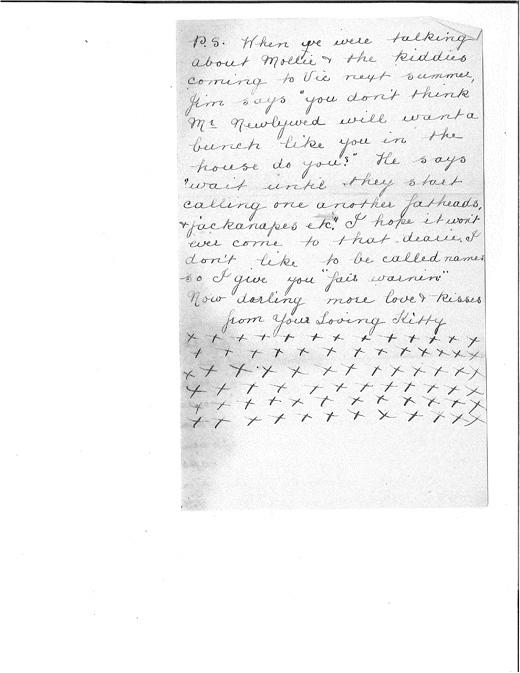 P.S. When we were talking
about Mollie & the kiddies
coming to Vic next summer,
Jim says "you don't think
Mr Newlywed will want a
bunch like you in the
house do you?" He says
"wait until they start
calling one another fatheads,
& jackanapes etc." I hope it won't
ever come to that dearie. I
don't like to be called names
so I give you "fair warnin"
Now darling more love & kisses
from Your Loving Kitty
x x x x x x x x x x x x
x x x x x x x x x x x x x
x x x x x x x x x x x x
x x x x x x x x x x x x
x x x x x x x x x x x x
x x x x x x x x x x x x